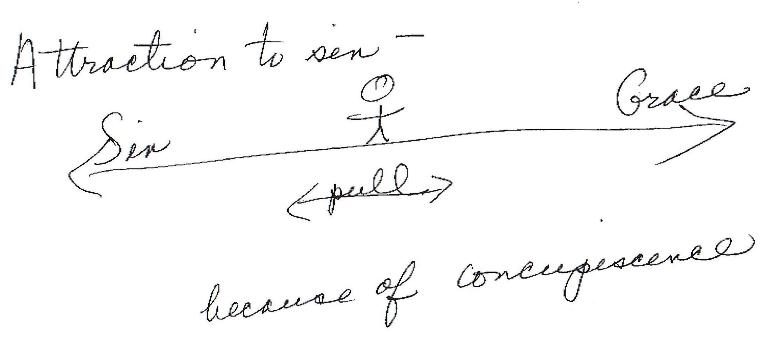 Attraction to sin –
Grace
Sin
pull
because of concupiscence